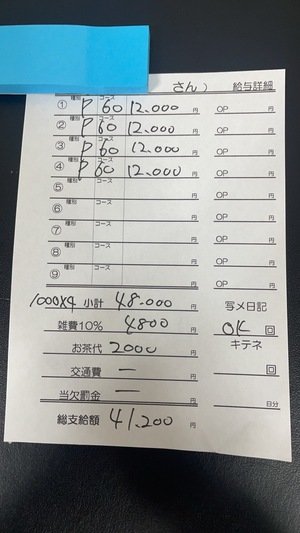 さん） 給与詳細
① 種別 P コース 60 12.000 円 OP 円
② 種別 P コース 60 12.000 円 OP 円
③ 種別 P コース 60 12.000 円 OP 円
④ 種別 P コース 60 12.000 円 OP 円
⑤ 種別 コース 円 OP 円
⑥ 種別 コース 円 OP 円
⑦ 種別 コース 円 OP 円
⑧ 種別 コース 円 OP 円
⑨ 種別 コース 円 OP 円
1000×4 小計 48.000 円 写メ日記
雑費10% 4800 円 OK 回
お茶代 2000 円 キテネ
交通費 ー 円 回
当欠罰金 ー 円 日分
総支給額 41.200 円